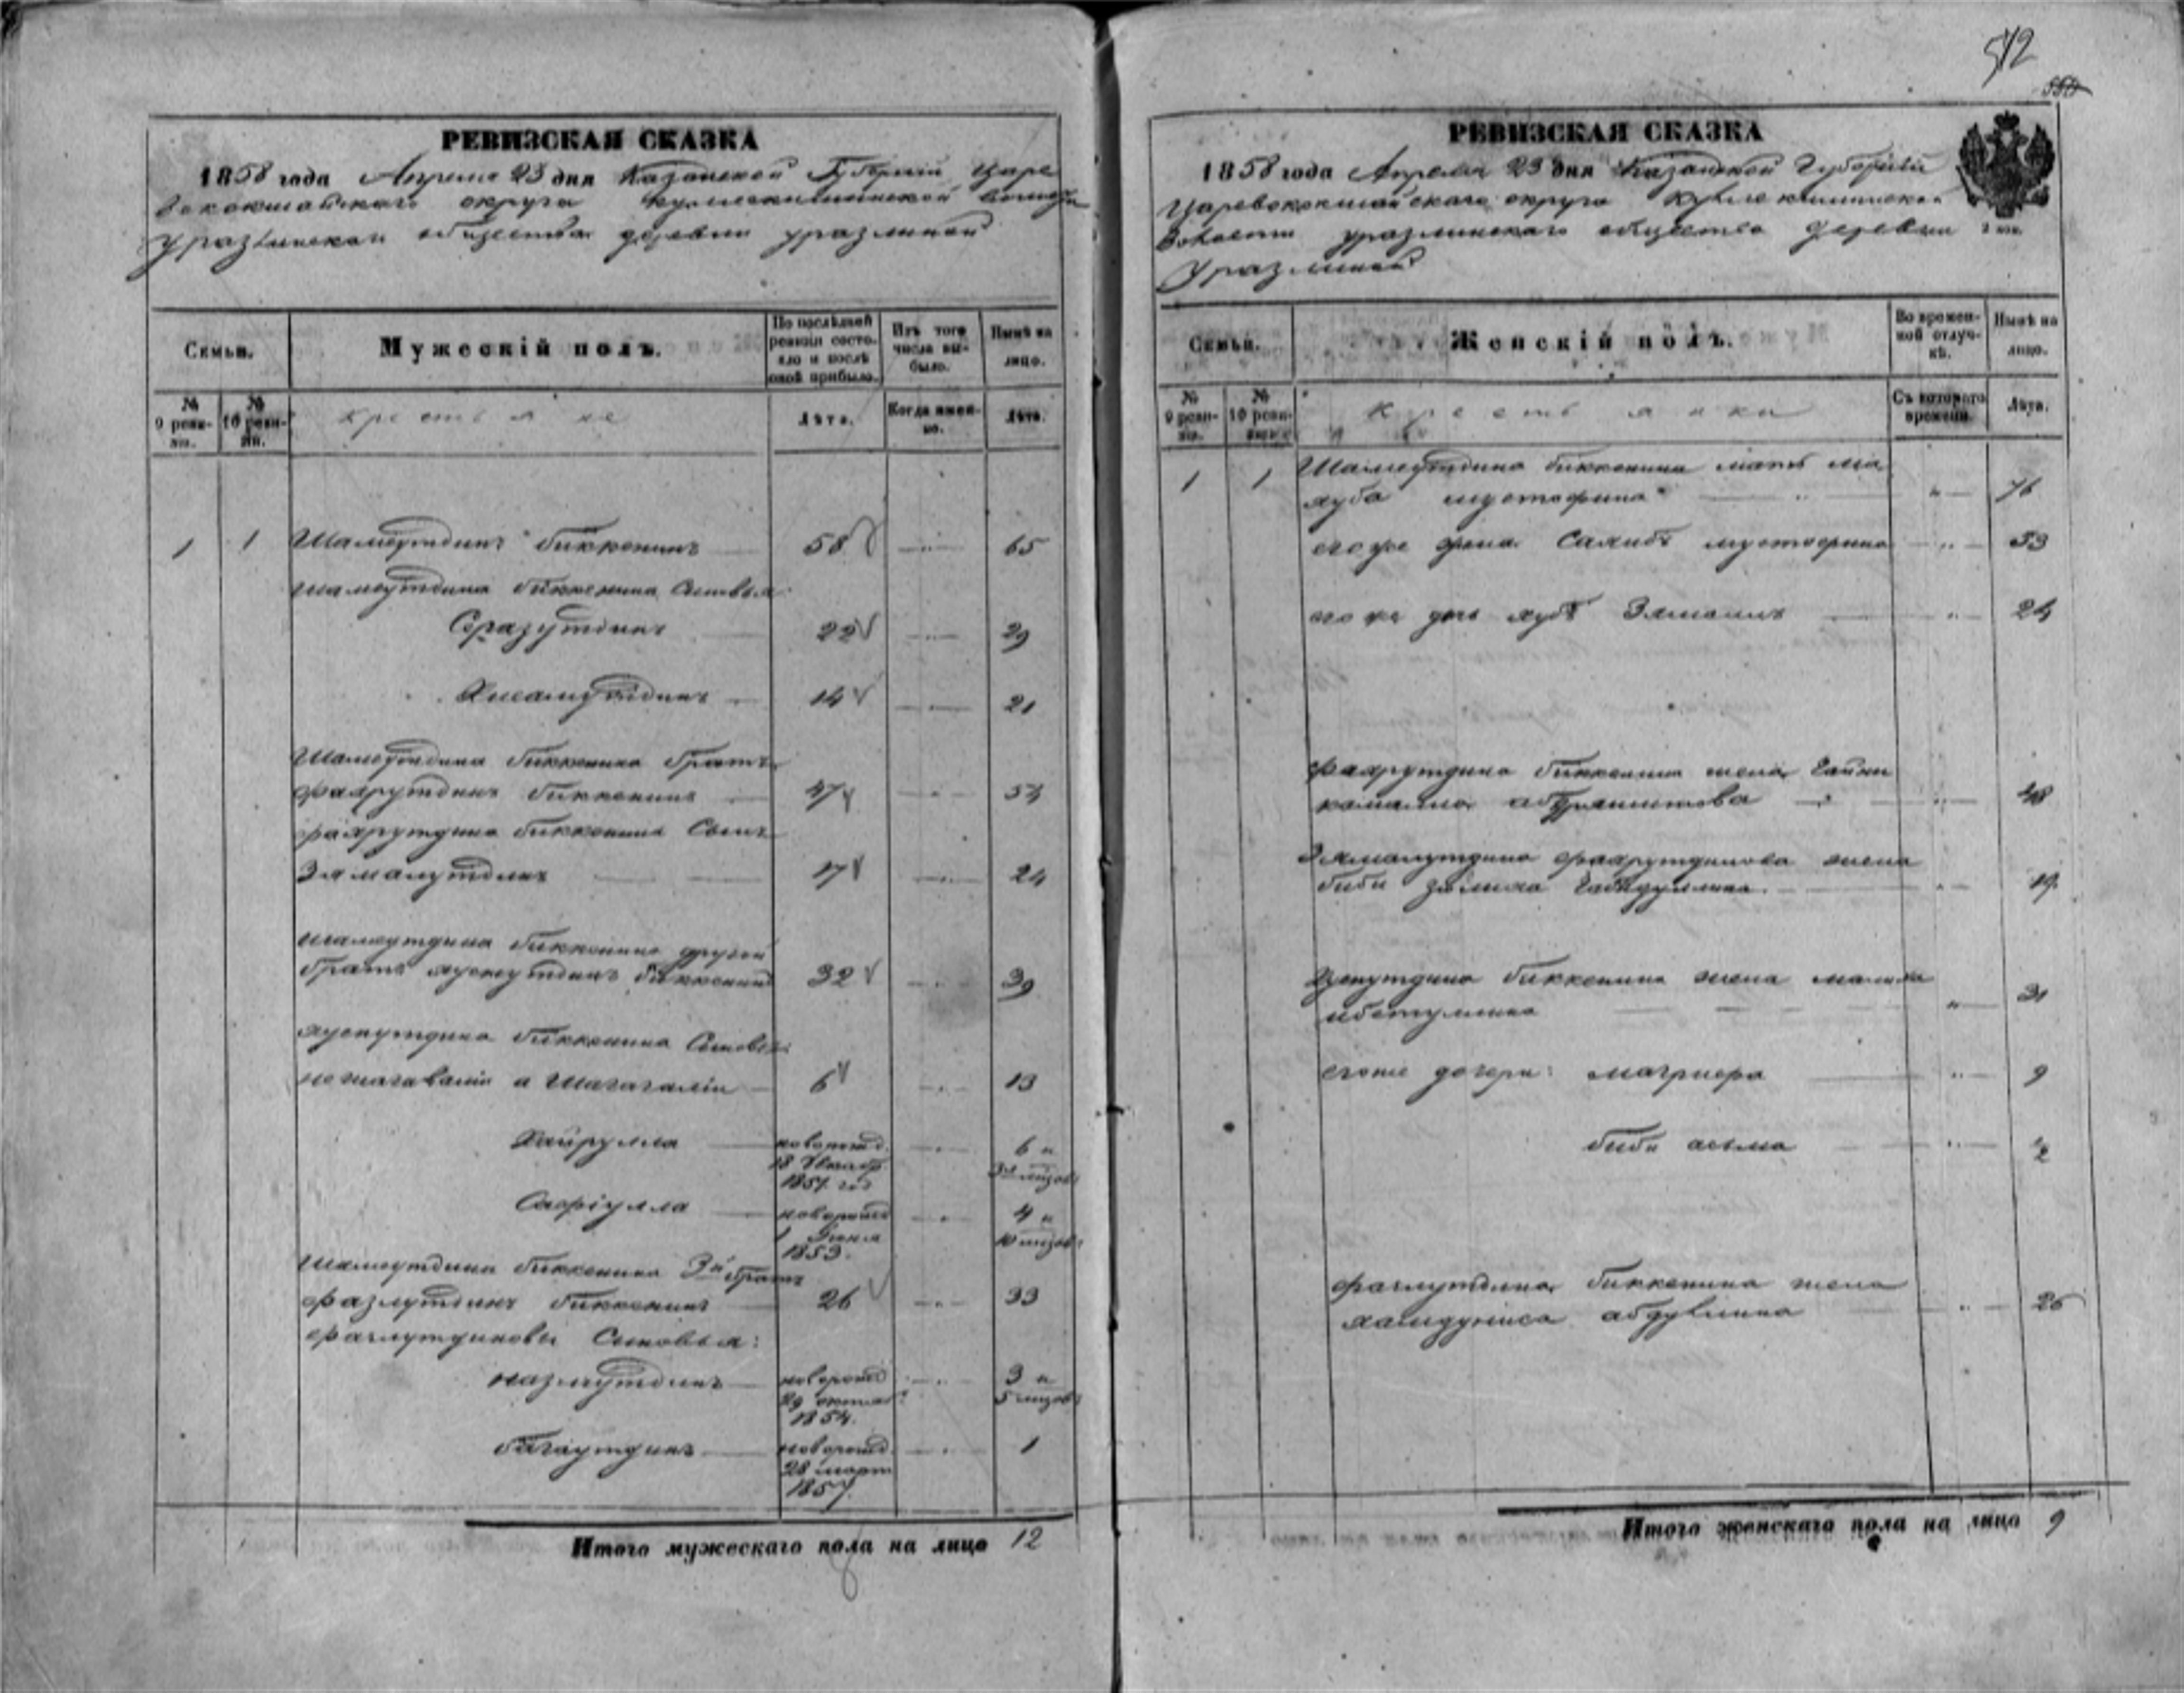 512
РЕВИЗСКАЯ СКАЗКА
1858 года Апреля 23 дня Казанской Губерніи Царе
вококшайскаго округа волости
Уразлинскаго общества деревни Уразлиной
Семьи.
Мужескій полъ.
По послѣдней ревизіи состояло и послѣ оной прибыло.
Изъ того числа выбыло.
Нынѣ на лицо.
№ 9 ревизіи.
№ 10 ревизіи.
крестьяне
Лѣта.
Когда именно.
Лѣта.
1 1 Шамеутдинъ Биккенинъ 58 65
Шамеутдина Биккенина Сыновья
Серазутдинъ 22 29
Хисамутдинъ 14 21
Шамеутдина Биккенина братъ
Фахрутдинъ Биккенинъ 47 54
Фахрутдина Биккенина Сынъ
Зямалутдинъ 17 24
Шамеутдина Биккенина другой
братъ Хуснутдинъ Биккенинъ 32 39
Хуснутдина Биккенина Сыновья
а Шагагалій 6 13
Хайрулла новорожд. 6 и
18 1851
Сафіулла новорожд 4 и
1 Іюня 10 месяц
1853.
Шамеутдина Биккенина 3й братъ
Фазлутдинъ Биккенинъ 26 33
Фазлутдиновы Сыновья:
Назмутдинъ новорожд 3 и
29 октяб 5 месяц
1854.
Багаутдинъ новорожд. 1
28 март
1857.
Итого мужескаго пола на лицо 12
РЕВИЗСКАЯ СКАЗКА
1858 года Апреля 23 дня Казанской Губерніи
Царевококшайскаго округа
Волости Уразлинскаго общества деревни
Уразлиной
Семьи.
Женскій полъ.
Во временной отлучкѣ.
Нынѣ на лицо.
№ 9 ревизіи.
№ 10 ревизіи.
крестьянки
Съ котораго времени.
Лѣта.
1 1 Шамеутдина Биккенина мать Ма
хуба Мустафина 76
его же жена Салиба Мустафина 53
его же дочь 24
Фахрутдина Биккенина жена Гайни
камалиа 48
Зямалутдина Фахрутдинова жена
Биби Габидуллина 19
Хуснутдина Биккенина жена Малика
31
его же дочери: 9
Биби Асьма 1/2
Фазлутдина Биккенина жена
Хамдуниса 26
Итого женскаго пола на лицо 9